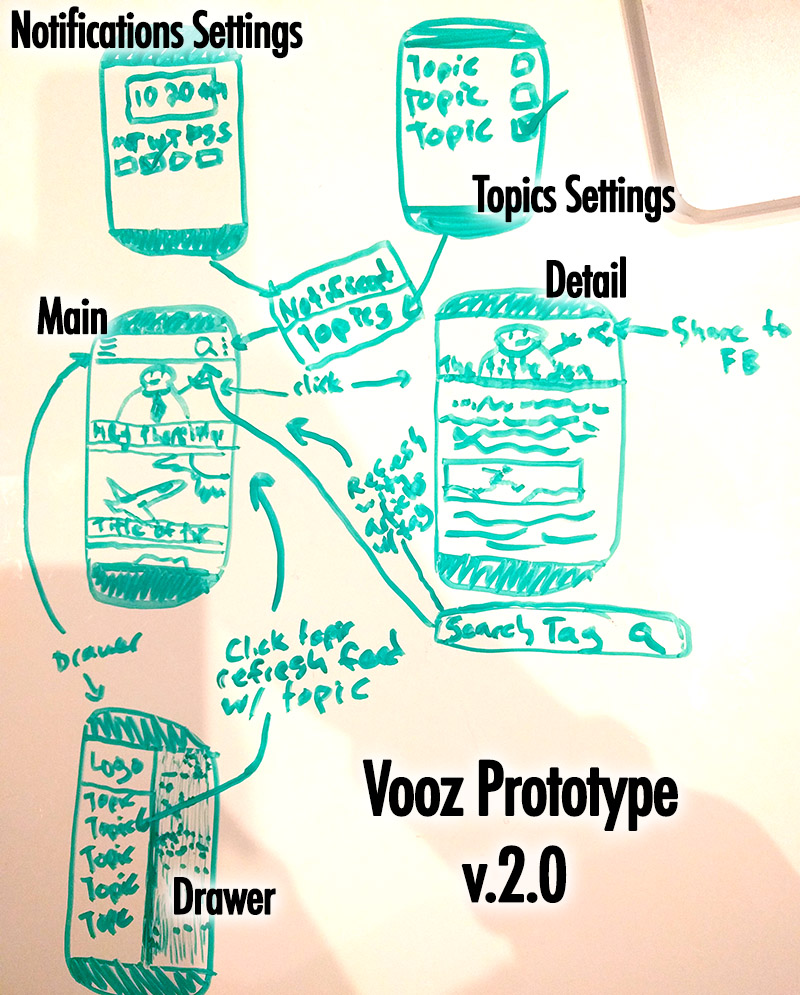 Notifications Settings
10 20 am
M T W T F S S
Topic
Topic
Topic
Topics Settings
Notificat
Topics
Main
Detail
Share to
FB
click
The title
Refresh
Title of
Search Tag
Drawer
Click topic
refresh feed
w/ topic
Logo
Topic
Topic
Topic
Topic
Topic
Drawer
Vooz Prototype
v.2.0